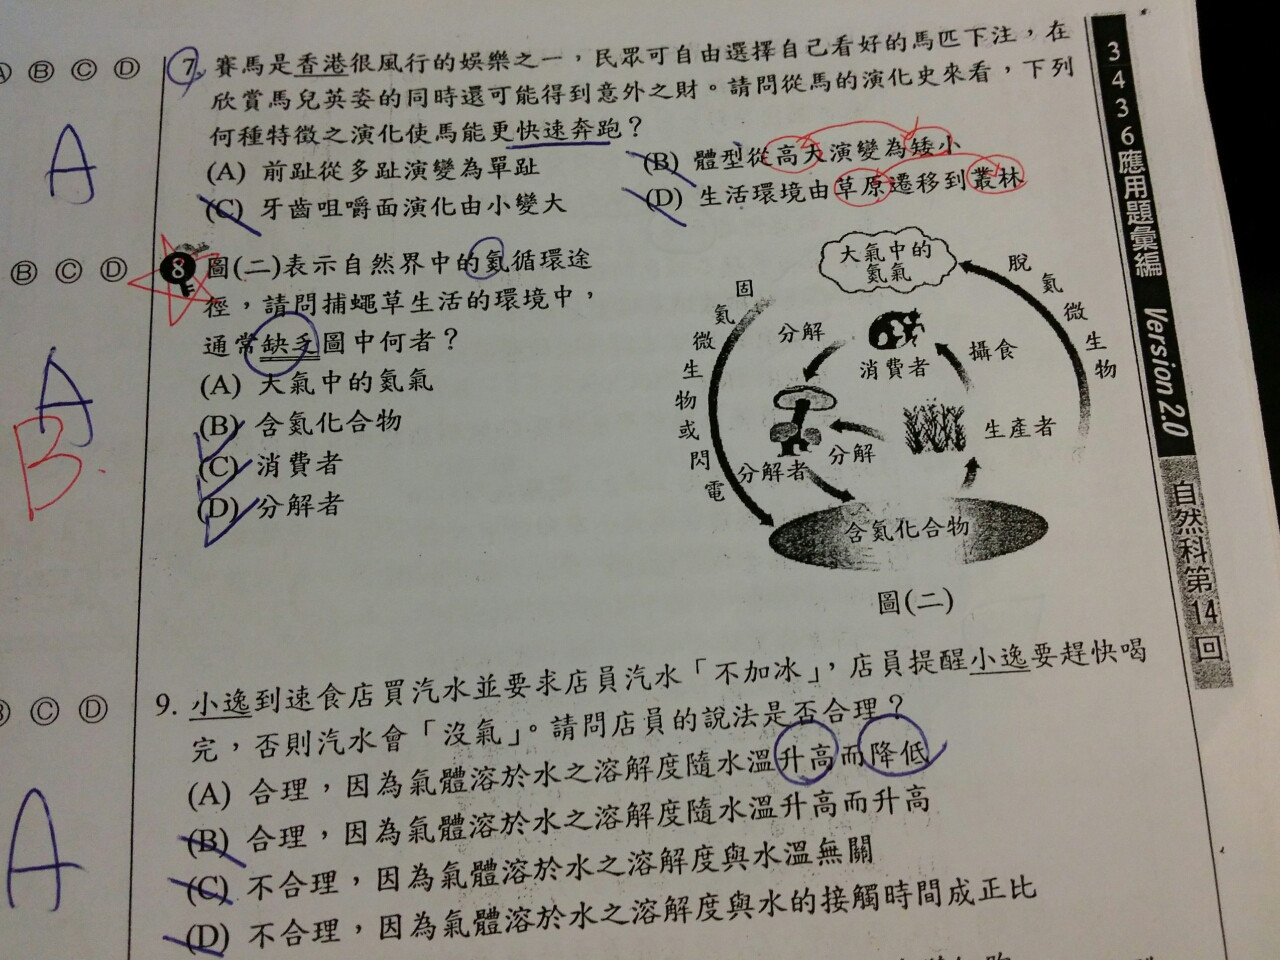 Ⓐ Ⓑ Ⓒ Ⓓ
7. 賽馬是香港很風行的娛樂之一，民眾可自由選擇自己看好的馬匹下注，在
欣賞馬兒英姿的同時還可能得到意外之財。請問從馬的演化史來看，下列
何種特徵之演化使馬能更快速奔跑？
(A) 前趾從多趾演變為單趾
(B) 體型從高大演變為矮小
(C) 牙齒咀嚼面演化由小變大
(D) 生活環境由草原遷移到叢林
A
Ⓑ Ⓒ Ⓓ
8 圖(二)表示自然界中的氮循環途
徑，請問捕蠅草生活的環境中，
通常缺乏圖中何者？
(A) 大氣中的氮氣
(B) 含氮化合物
(C) 消費者
(D) 分解者
A
B.
大氣中的
氮氣
固氮微生物或閃電
脫氮微生物
分解
消費者
攝食
生產者
分解
分解者
含氮化合物
圖(二)
Ⓑ Ⓒ Ⓓ
9. 小逸到速食店買汽水並要求店員汽水「不加冰」，店員提醒小逸要趕快喝
完，否則汽水會「沒氣」。請問店員的說法是否合理？
(A) 合理，因為氣體溶於水之溶解度隨水溫升高而降低
(B) 合理，因為氣體溶於水之溶解度隨水溫升高而升高
(C) 不合理，因為氣體溶於水之溶解度與水溫無關
(D) 不合理，因為氣體溶於水之溶解度與水的接觸時間成正比
A
3436應用題彙編 Version 2.0
自然科第14回